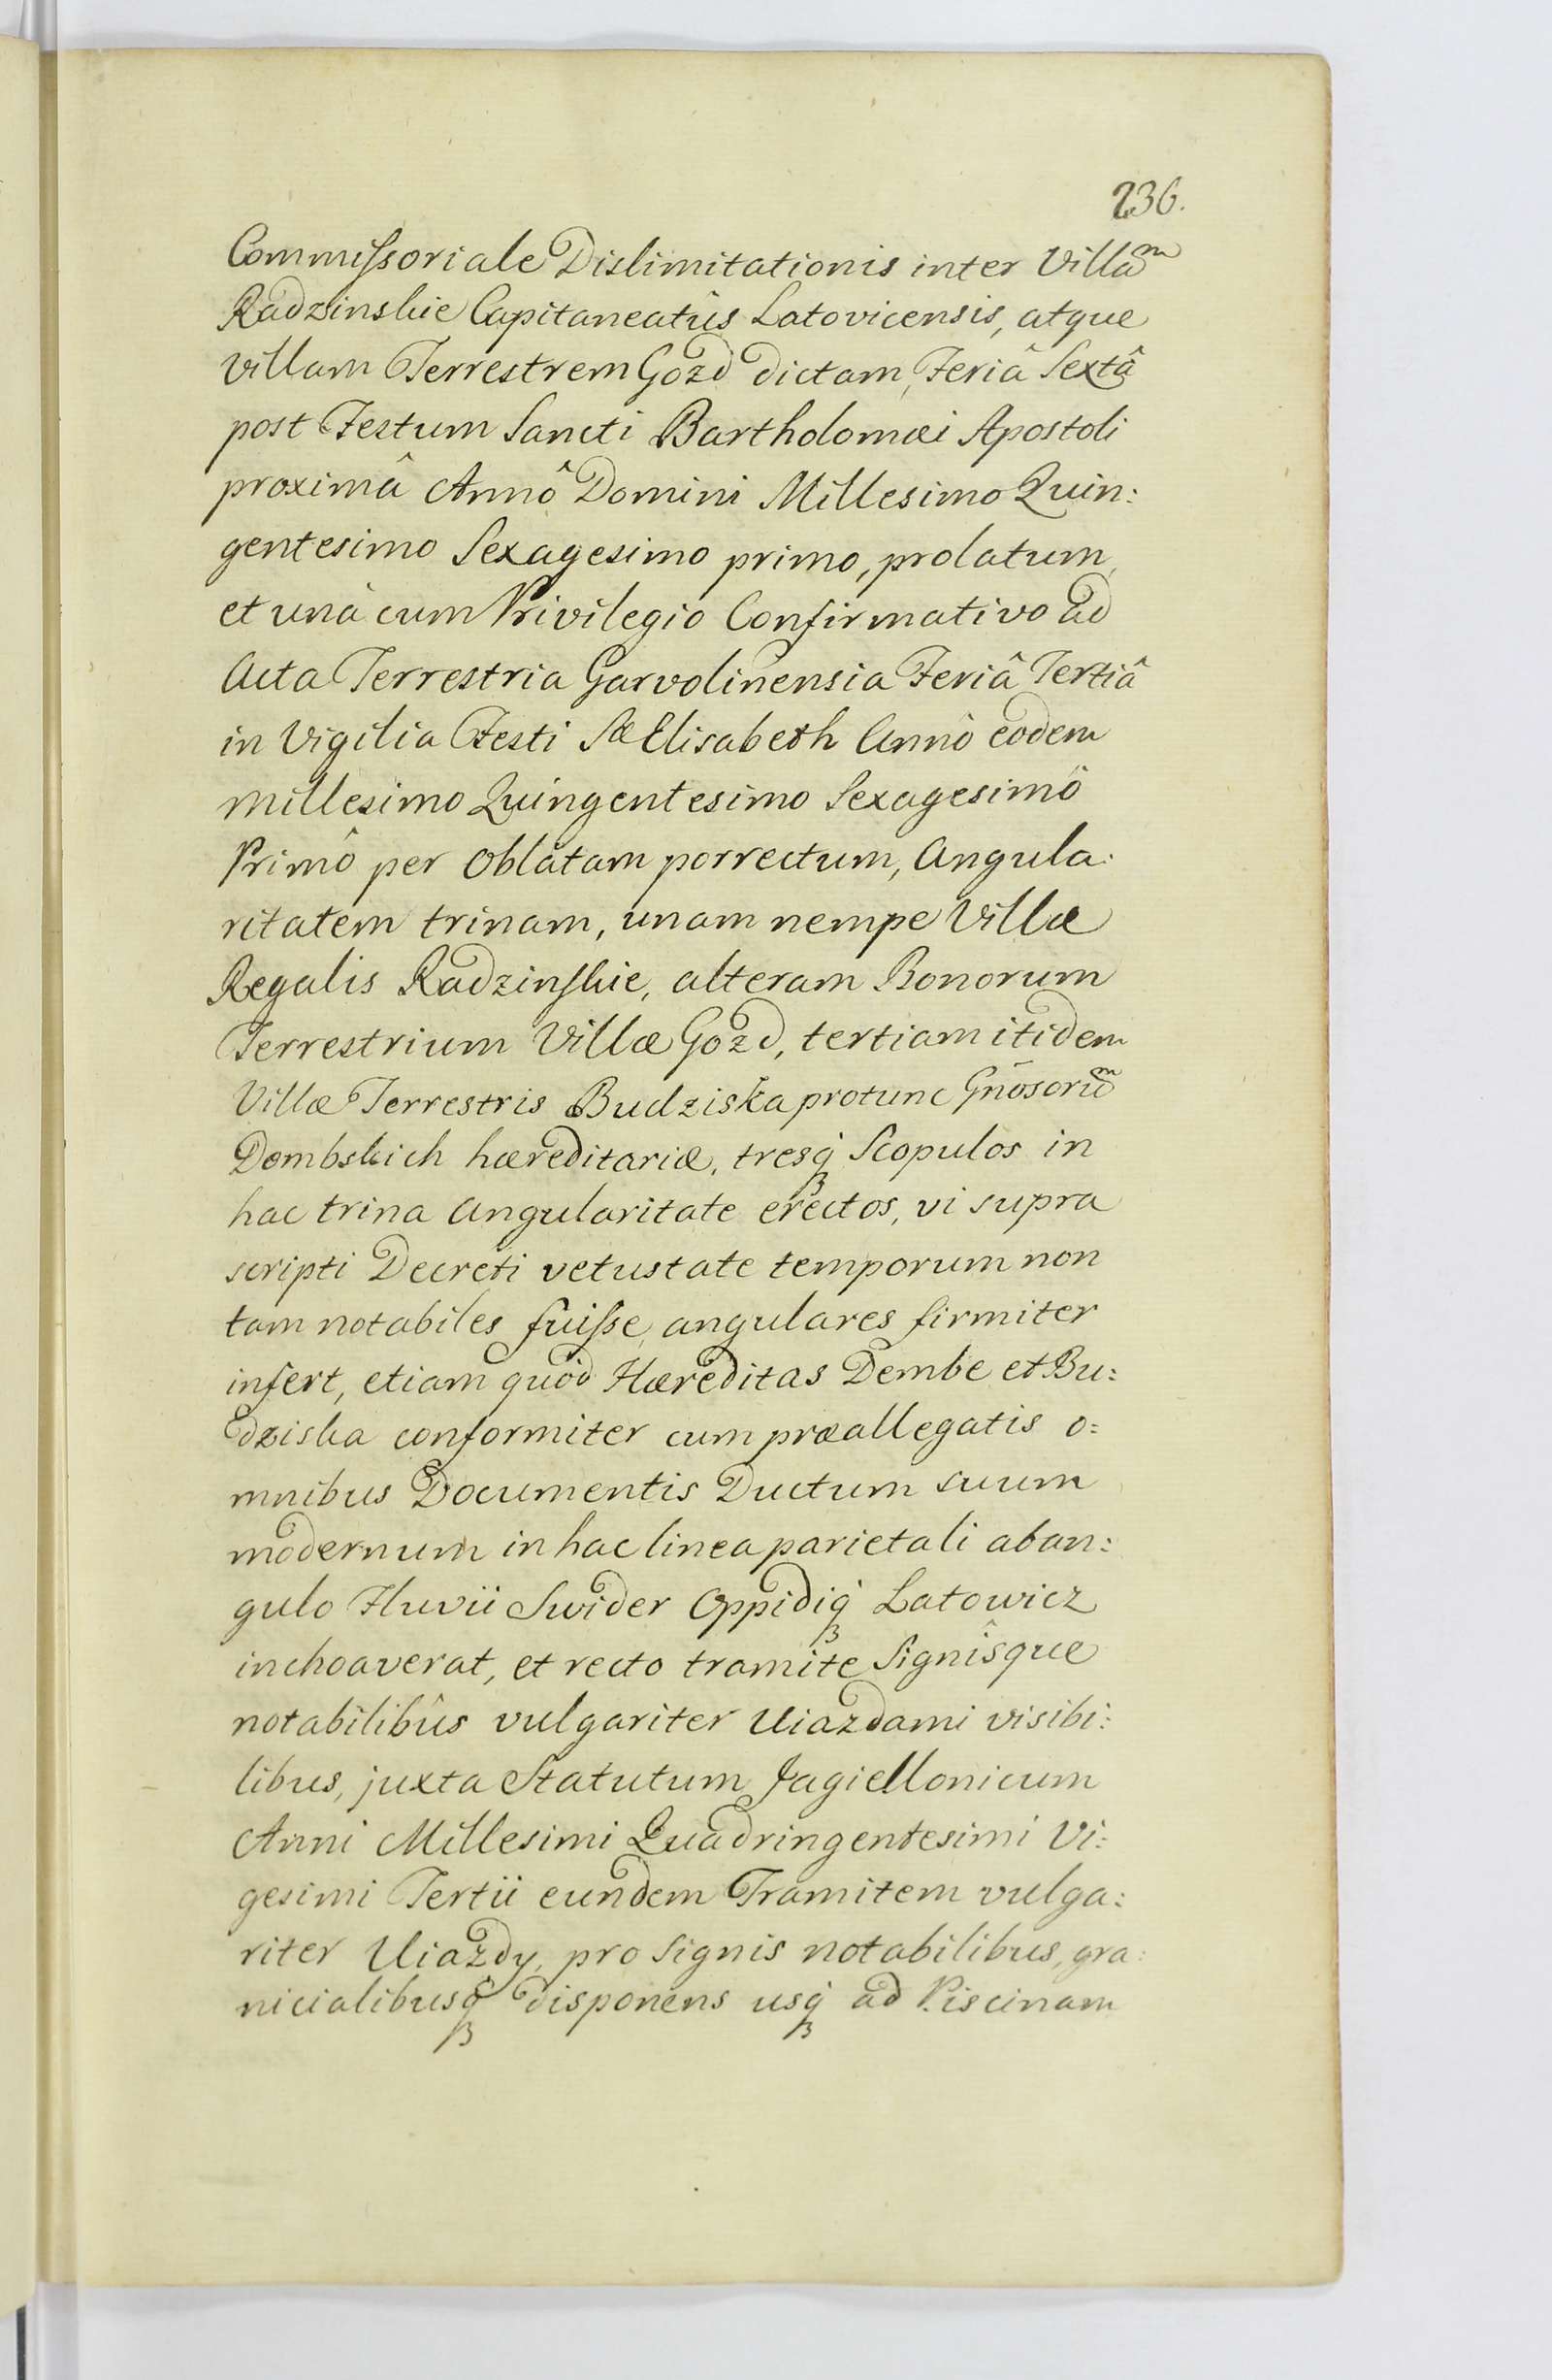 236.
Commiſsoriale Dislimitationis inter Villaᵐ
Radzinskie Capitaneatûs Latovicensis, atque
Villam Terrestrem Gozd dictam, Feriâ Sextâ
post Festum Sancti Bartholomæi Apostoli
proximâ Annô Domini Millesimo Quin:
gentesimo Sexagesimo primo, prolatum,
et unà cum Privilegio Confirmativo ad
Acta Terrestria Garvolinensia Feriâ Tertiâ
in Vigilia Festi Sæ Elisabeth Annô eodem
Millesimo Quingentesimo Sexagesimô
Primô per Oblatam porrectum, Angula:
ritatem trinam, unam nempe Villæ
Regalis Radzinſkie, alteram Bonorum
Terrestrium Villæ Gozd, tertiam itidem
Villæ Terrestris Budziska protunc Gñosoruᵐ
Dembskich hæreditariæ, tresq́ꝫ Scopulos in
hac trina Angularitate erectos, vi supra
scripti Decreti vetustate temporum non
tam notabiles fuiſse, angulares firmiter
infert, etiam quòd Hæreditas Dembe et Bu:
dziska conformiter cum præallegatis o:
mnibus Documentis Ductum suum
modernum in hac linea parietali ab an:
gulo Fluvii Swider Oppidiq́ꝫ Latowicz
inchoaverat, et recto tramite Signîsque
notabilibûs vulgariter Uiazdami visibi:
libus, juxta Statutum Jagiellonicum
Anni Millesimi Quadringentesimi Vi:
gesimi Tertii eundem Tramitem vulga:
riter Uiazdy, pro Signis notabilibus, gra:
nicialibusq́ꝫ disponens usq́ꝫ ad Piscinam